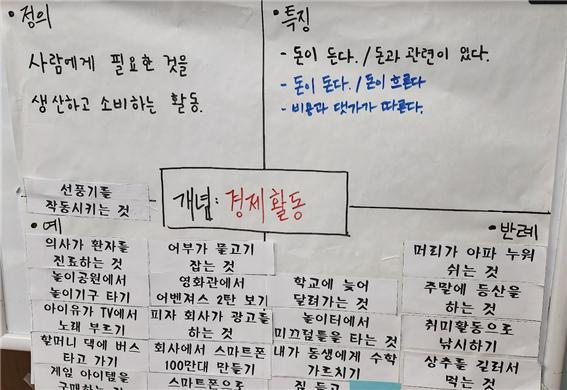 · 정의
사람에게 필요한 것을
생산하고 소비하는 활동.
· 특징
- 돈이 든다. / 돈과 관련이 있다.
- 돈이 돈다. / 돈이 흐른다
- 비용과 댓가가 따른다.
개념: 경제활동
선풍기를
작동시키는 것
· 예
의사가 환자를
진료하는 것
놀이공원에서
놀이기구 타기
아이유가 TV에서
노래 부르기
할머니 댁에 버스
타고 가기
게임 아이템을
구매하는 것
어부가 물고기
잡는 것
영화관에서
어벤져스 2탄 보기
피자 회사가 광고를
하는 것
회사에서 스마트폰
100만대 만들기
스마트폰으로
학교에 늦어
달려가는 것
놀이터에서
미끄럼틀을 타는 것
내가 동생에게 수학
가르치기
· 반례
머리가 아파 누워
쉬는 것
주말에 등산을
하는 것
취미활동으로
낚시하기
상추를 길러서
먹는 것